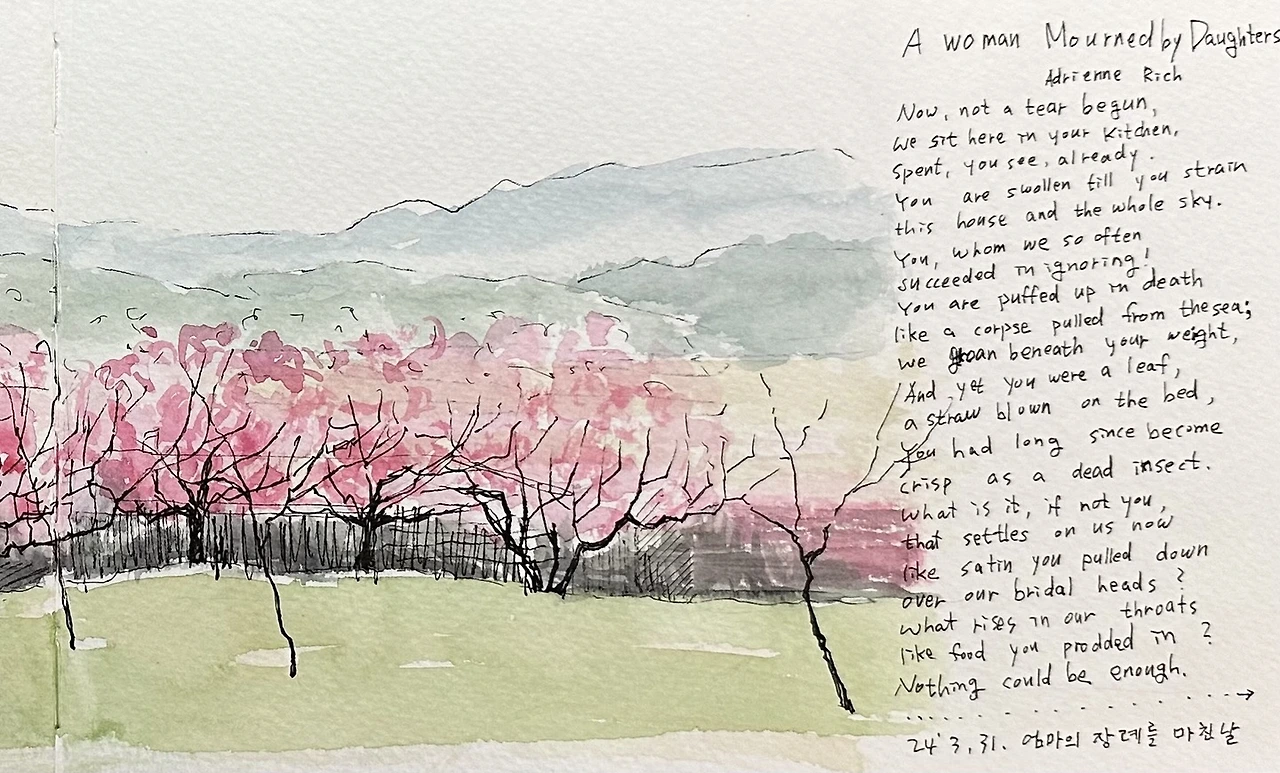 A woman Mourned by Daughters
Adrienne Rich
Now, not a tear begun,
we sit here in your kitchen,
spent, you see, already.
You are swollen till you strain
this house and the whole sky.
You, whom we so often
succeeded in ignoring!
You are puffed up in death
like a corpse pulled from the sea;
we groan beneath your weight,
And yet you were a leaf,
a straw blown on the bed,
you had long since become
crisp as a dead insect.
what is it, if not you,
that settles on us now
like satin you pulled down
over our bridal heads?
what rises in our throats
like food you prodded in?
Nothing could be enough.
24' 3. 31. 엄마의 장례를 마친 날